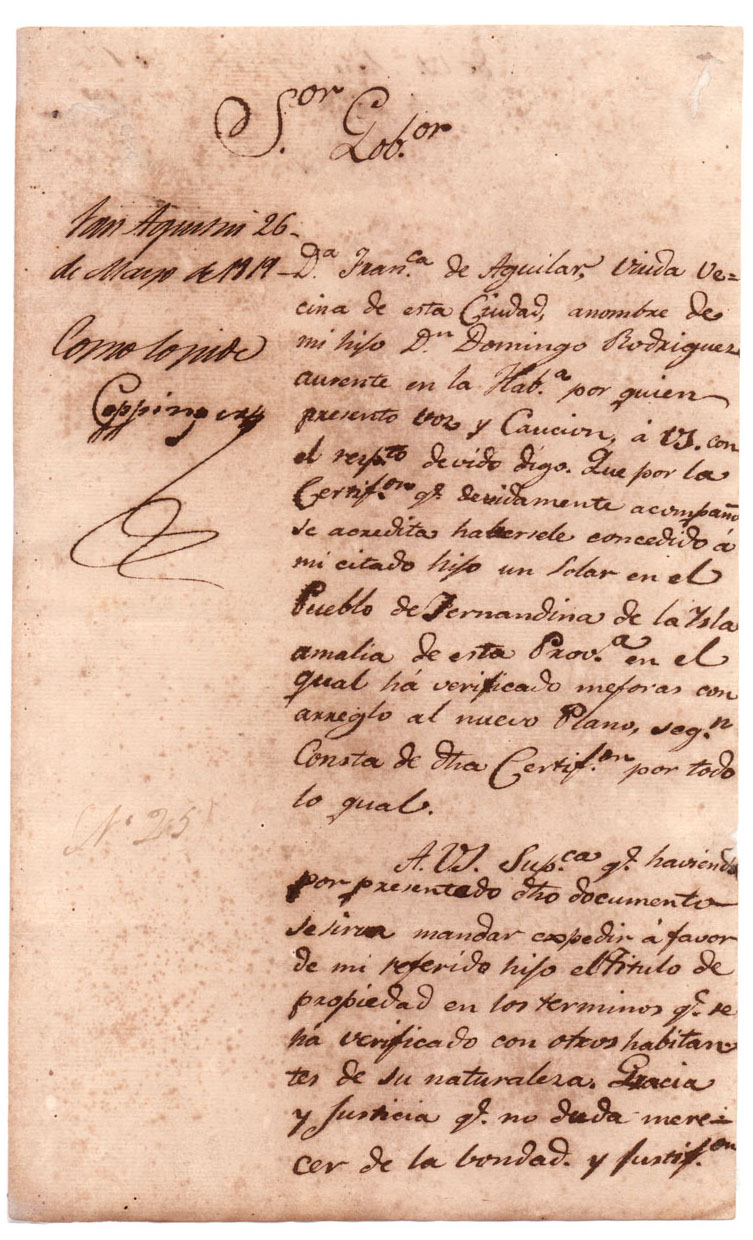 S.or Gob.or
San Agustin 26
de Mayo de 1819
Como lo pide
Coppinger
D.a Fran.ca de Aguilar, viuda ve-
cina de esta Ciudad, anombre de
mi hijo D.n Domingo Rodriguez
ausente en la Hab.a por quien
presento voz y Caucion, á VS. con
el resp.to devido digo. Que por la
Certif.on q.e devidamente acompaño
se acredita habersele concedido á
mi citado hijo un solar en el
Pueblo de Fernandina de la Isla
amalia de esta Prov.a en el
qual há verificado mejoras con
arreglo al nuevo Plano, seg.n
Consta de dha Certif.on por todo
lo qual.
N.o 25
A. VS. Sup.ca q.e haviendo
por presentado dho documento
se sirva mandar expedir á favor
de mi referido hijo el titulo de
propiedad en los terminos q.e se
há verificado con otros habitan
tes de su naturaleza. Gracia
y Justicia q.e no duda mere-
cer de la bondad. y Justif.on